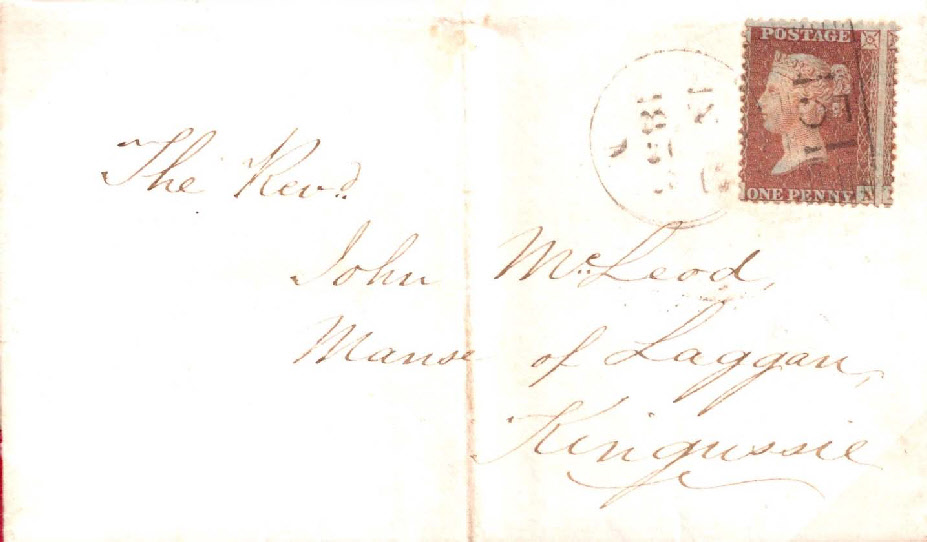 POSTAGE
ONE PENNY
131
The Revd.
John McLeod,
Manse of Laggan,
Kingussie